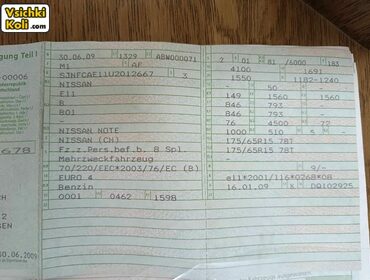 Vsichki
Koli.com
gung Teil I
30.06.09 1329 ABM000071
M1 AF
SJNFCAE11U2012667 3
NISSAN
E11
B
B01
-
NISSAN NOTE
NISSAN (CN)
Fz.z.Pers.bef.b. 8 Spl.
Mehrzweckfahrzeug
70/220/EEC*2003/76/EC (B)
EURO 4
Benzin
0001 0462 1598
2 01 81 /6000 183
4100 1691
1550 1182-1240
- 50 -
149 1560 1560
846 793 -
846 793 -
76 4500 72
1000 510 5 -
175/65R15 78T
175/65R15 78T
-
- 9/-
e11*2001/116*0268*08
16.01.09 K DQ102925
-00006
678
2
SEN
30.06.2009